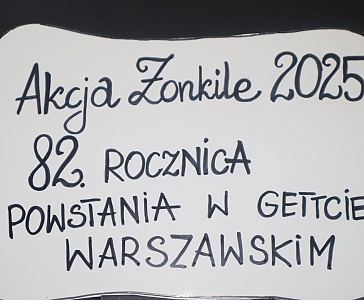 Akcja Żonkile 2025
82. ROCZNICA
POWSTANIA W GETTCIE
WARSZAWSKIM